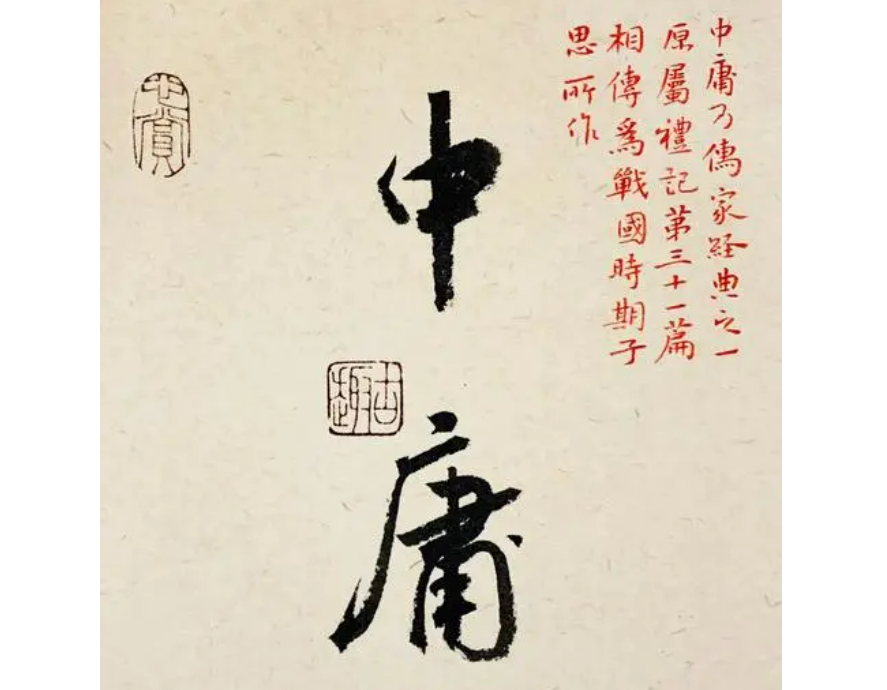 中庸乃儒家経典之一
原屬禮記第三十一篇
相傳爲戰國時期子
思所作
中庸
古趣
心賞